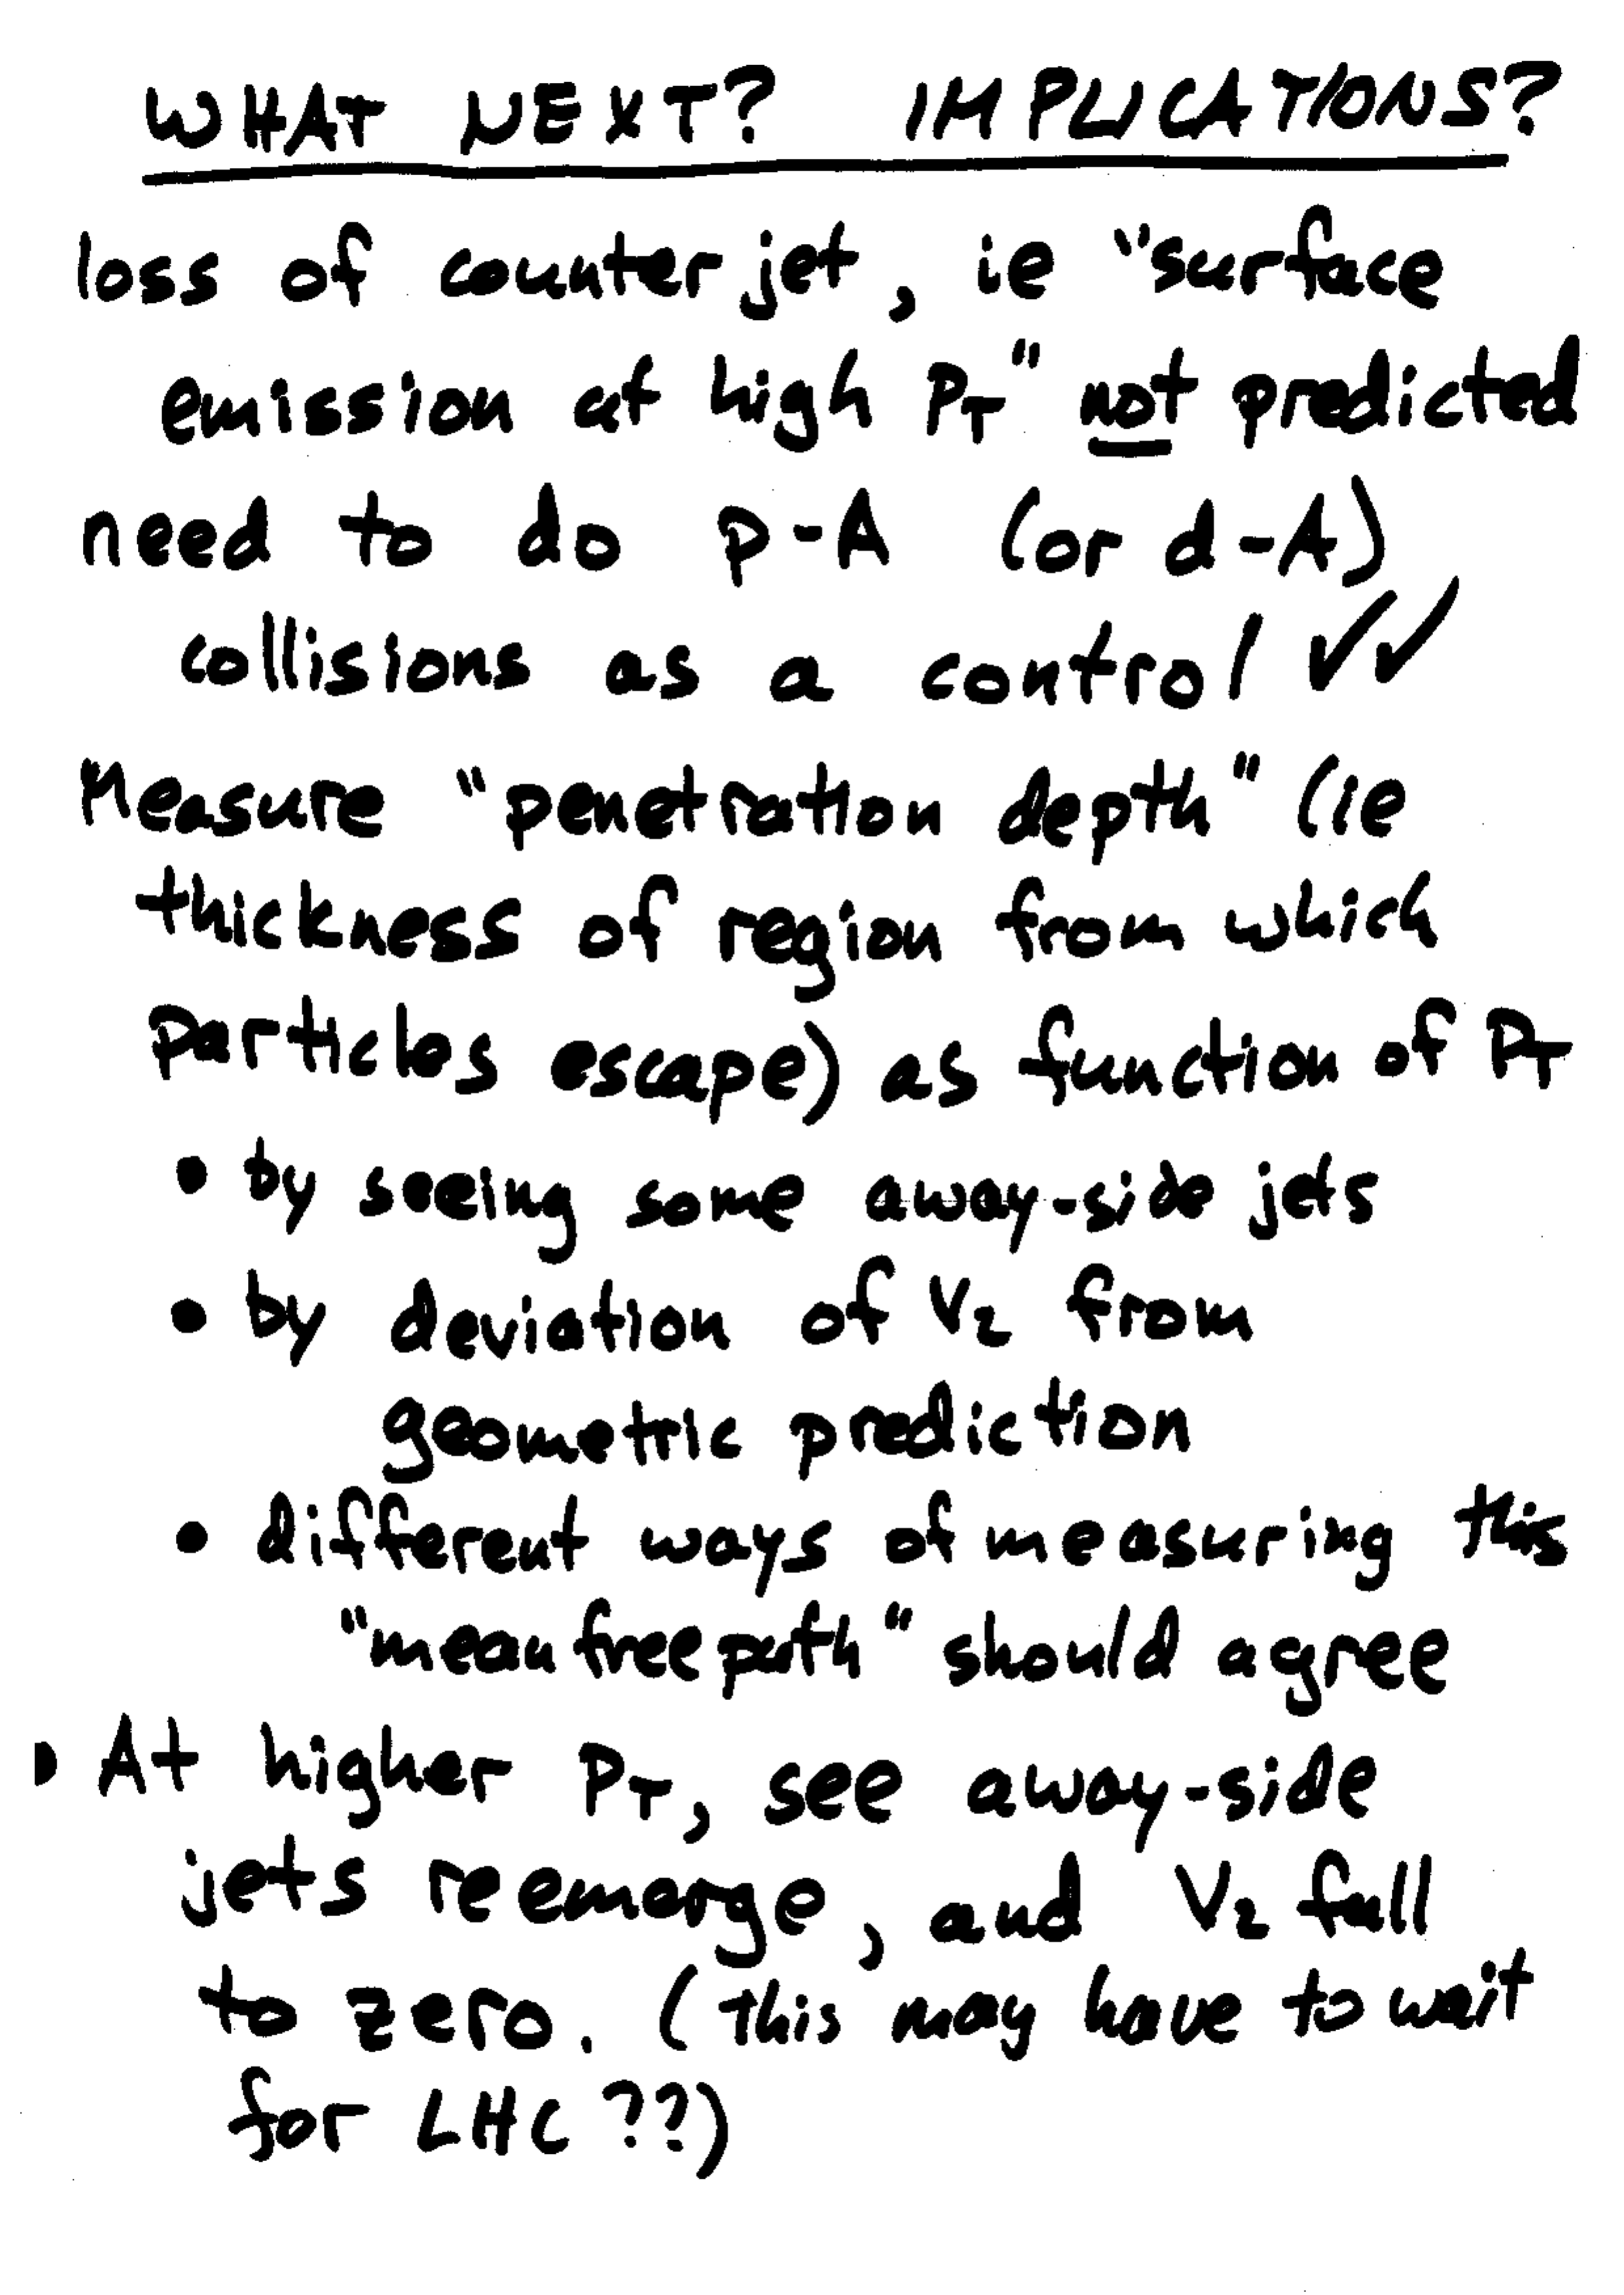 WHAT NEXT? IMPLICATIONS?
loss of counter jet, ie "surface
emission at high PT" not predicted
need to do p-A (or d-A)
collisions as a control ✓✓
Measure "penetration depth" (ie
thickness of region from which
particles escape) as function of PT
• by seeing some away-side jets
• by deviation of V2 from
geometric prediction
• different ways of measuring this
"mean free path" should agree
• At higher PT, see away-side
jets reemerge, and V2 fall
to zero. (This may have to wait
for LHC ??)